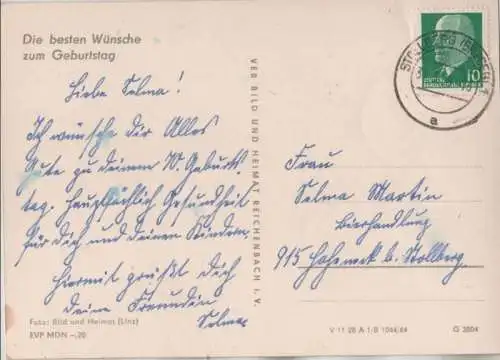 Die besten Wünsche
zum Geburtstag
Liebe Selma!
Ich wünsche dir Alles
Gute zu deinem 70. Geburts
tag. Hauptsächlich Gesundheit
für dich und deinen Kindern.
Hiermit grüßt Dich
deine Freundin
Selma
Foto: Bild und Heimat (Linz)
EVP MDN –,20
VEB BILD UND HEIMAT REICHENBACH I. V.
10
a
Frau
Selma Martin
Bierhandlung
915 Hoheneck b. Stollberg
V 11 28 A 1/B 1044/64
G 3804